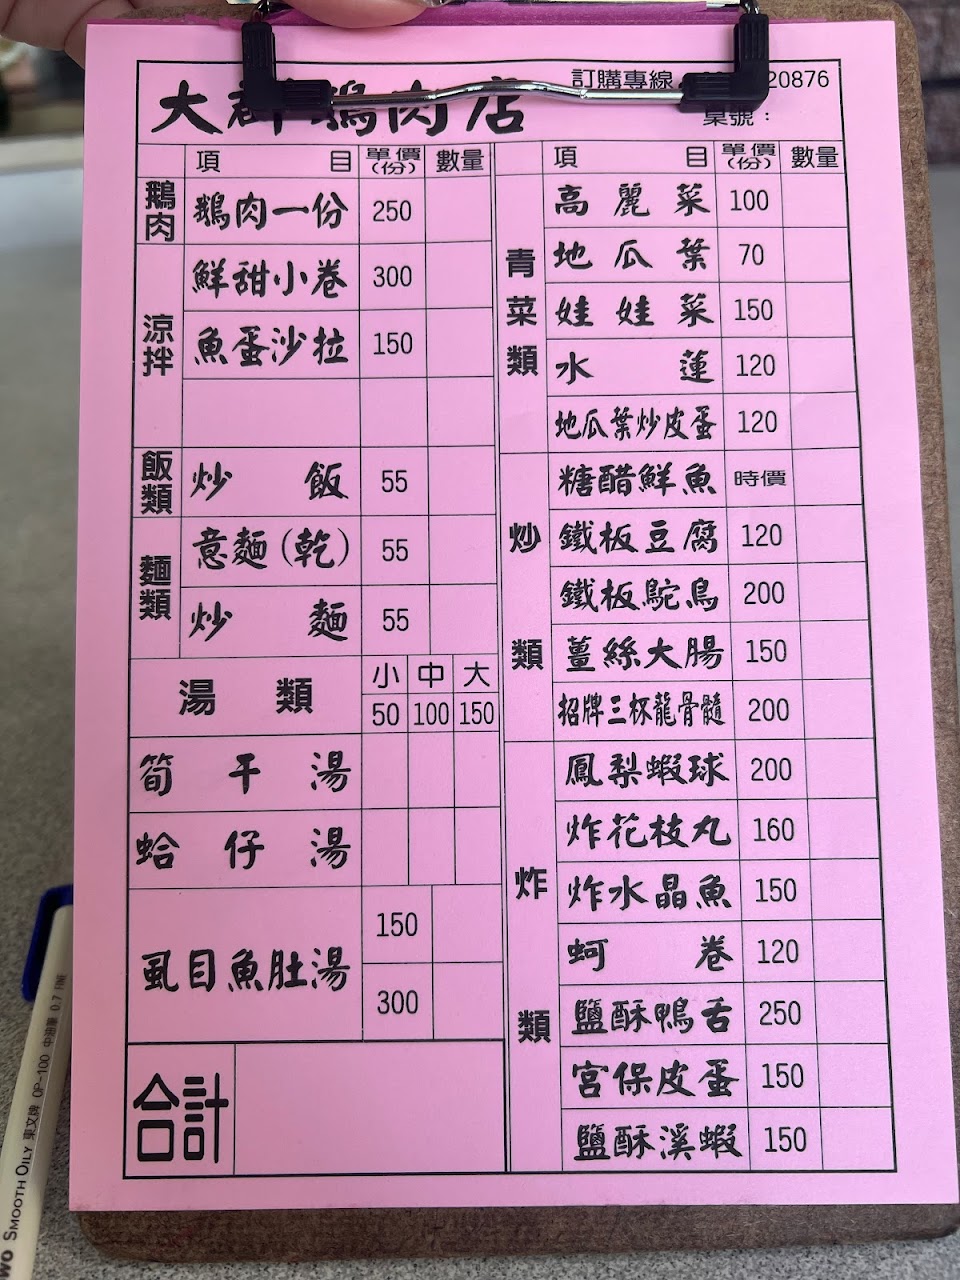 訂購專線 20876
大 鵝肉店
桌號：
項 目 單價(份) 數量
鵝肉
鵝肉一份 250
涼拌
鮮甜小卷 300
魚蛋沙拉 150
飯類
炒飯 55
麵類
意麵(乾) 55
炒麵 55
湯類 小 中 大
50 100 150
筍干湯
蛤仔湯
虱目魚肚湯 150
300
合計
項 目 單價(份) 數量
青菜類
高麗菜 100
地瓜葉 70
娃娃菜 150
水蓮 120
地瓜葉炒皮蛋 120
炒類
糖醋鮮魚 時價
鐵板豆腐 120
鐵板鴕鳥 200
薑絲大腸 150
招牌三杯龍骨髓 200
炸類
鳳梨蝦球 200
炸花枝丸 160
炸水晶魚 150
蚵卷 120
鹽酥鴨舌 250
宮保皮蛋 150
鹽酥溪蝦 150
SMOOTH OILY 東文牌 OP-100 中油筆 0.7 FINE